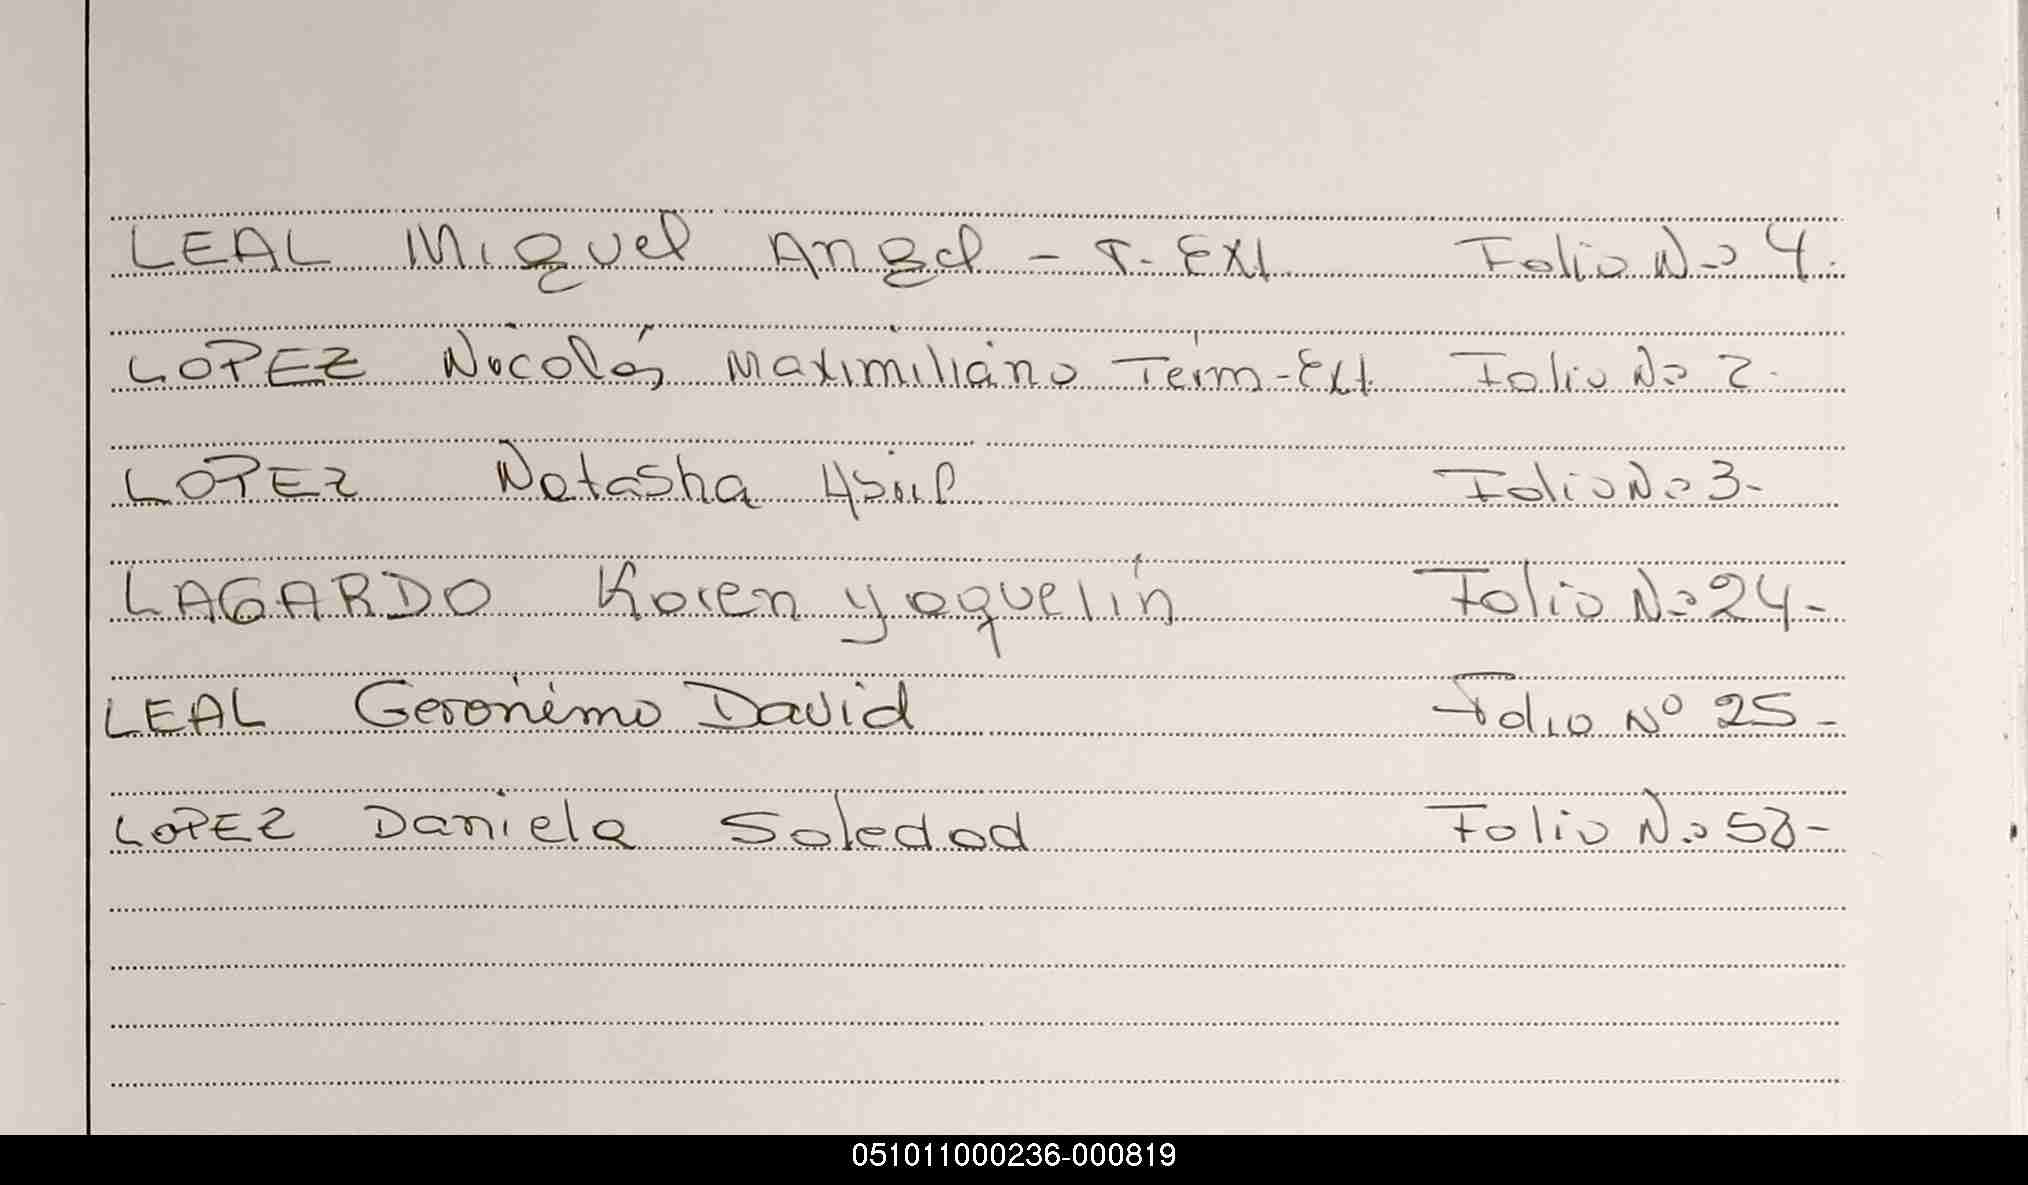 LEAL Miguel Angel - T. Ext Folio Nº 4.
LOPEZ Nicolás Maximiliano Térm-Ext. Folio Nº 2.
LOPEZ Natasha Folio Nº 3-
LAGARDO Karen yaquelin Folio Nº 24-
LEAL Gerónimo David Folio Nº 25-
LOPEZ Daniela Soledad Folio Nº 58-
051011000236-000819